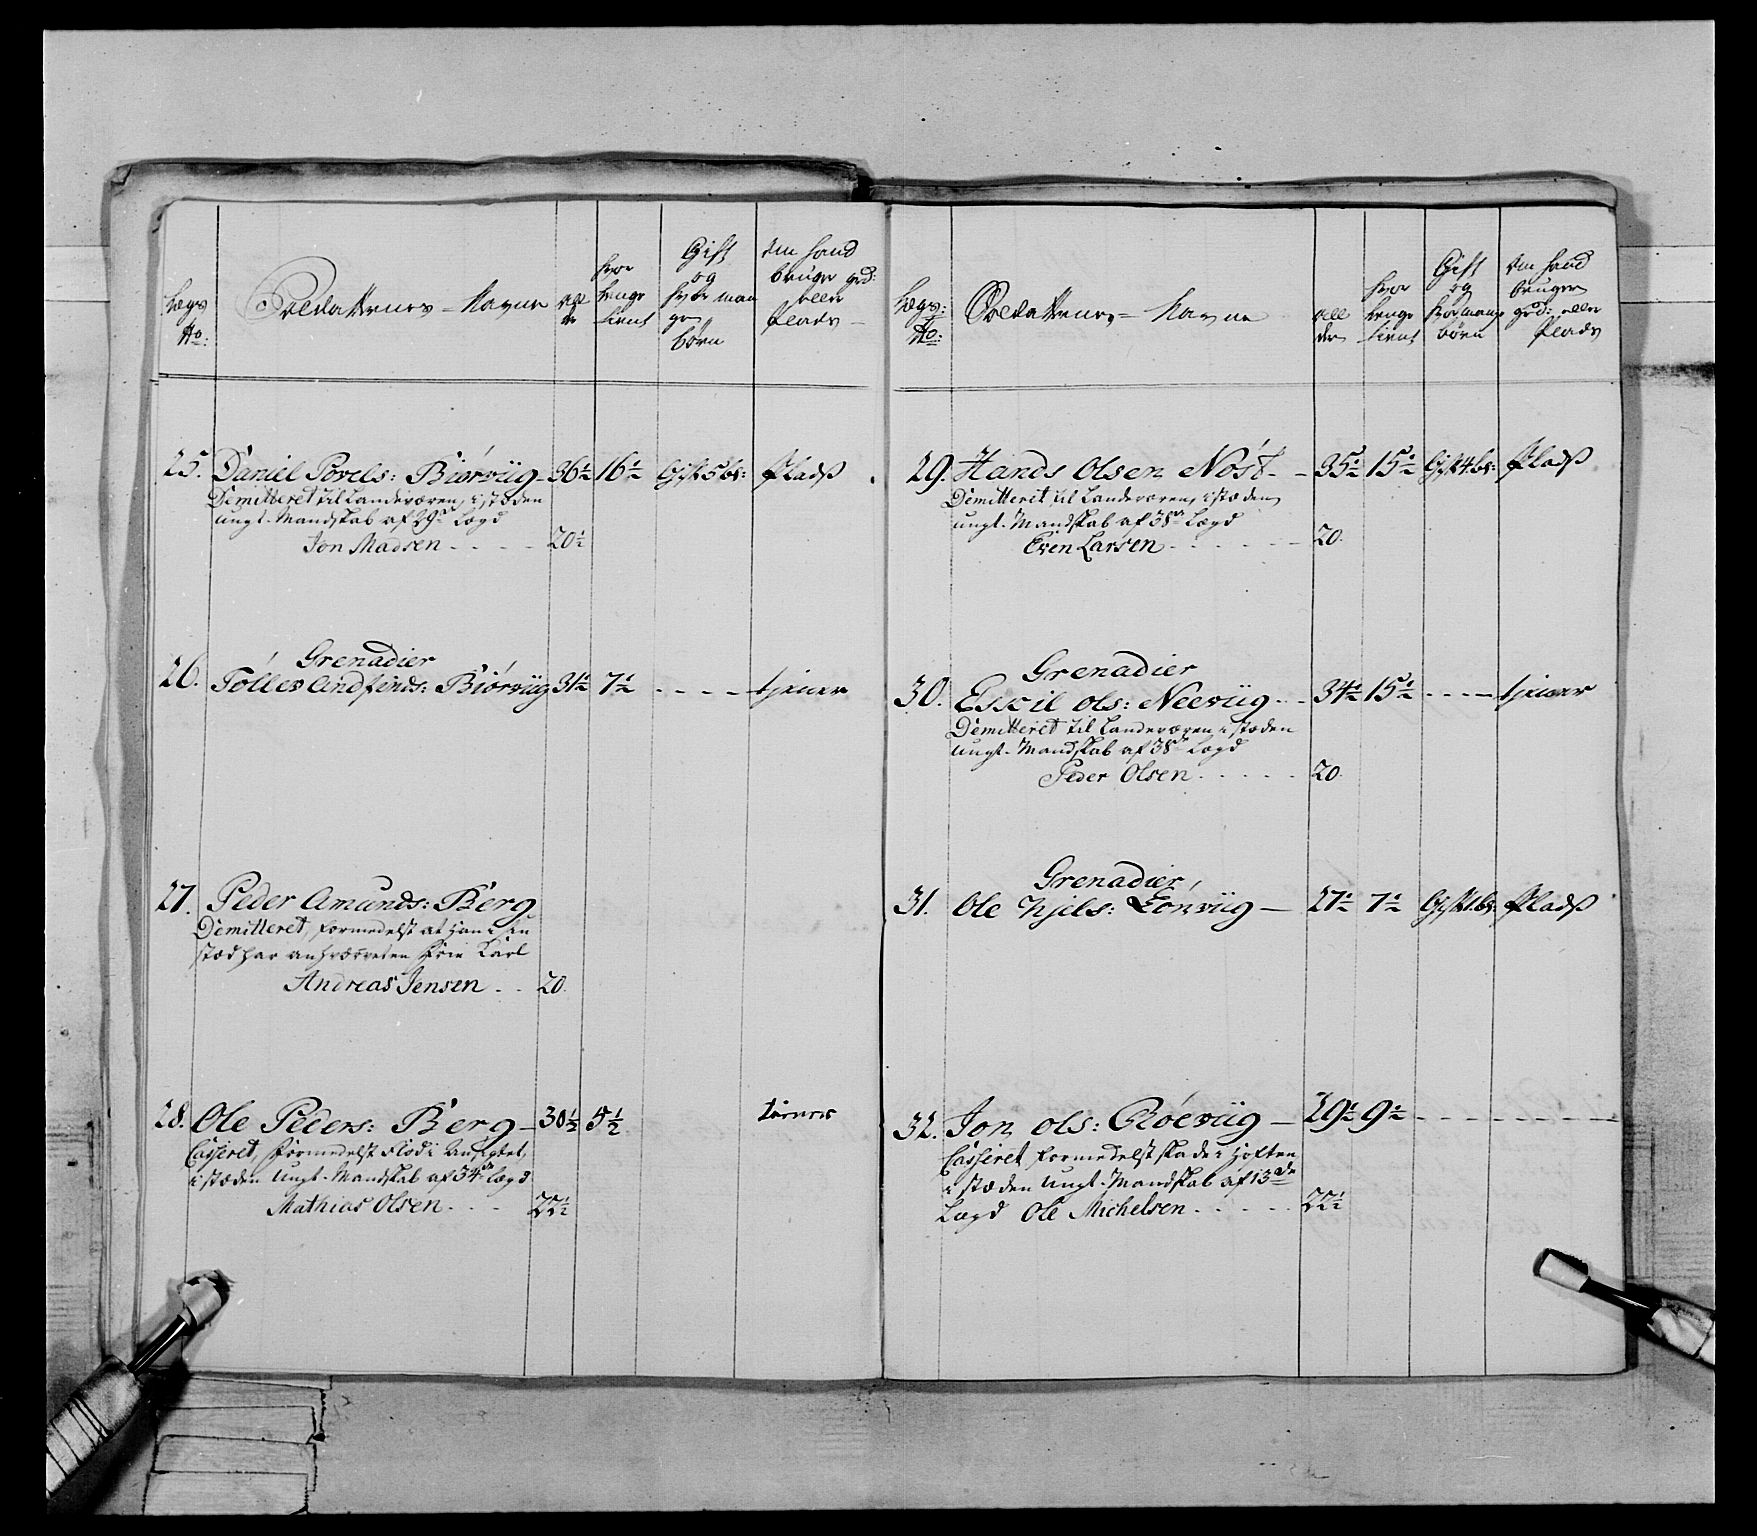 Lægs No:
Soldatternes Navne
all der
hvor lenge tient
Gift og hvor mange börn
om hand bruger grd: eller Plads
25. Daniel Povels: Biørviig 36½ 16½ Gift 5 br: Pladß
Demitteret til Landeværen, i stæden
ungt. Mandskab af 29de Lægd
Jon Madsen 20½
Grenadier
26. Tölles Andfinds: Biörviig 31½ 7½ tjener
27. Peder Amunds: Berg
Demitteret, formedelst at Han i sin
stæd har anhværvet en Frie Karl
Andreas Jensen 20.
28. Ole Peders: Berg 30½ 5½ tiener
Casseret, formedelst Flod i Ansigtet,
i stæden Ungt. Mandskab af 34de Lægd
Mathias Olsen 22½
Lægs: No:
Soldatternes Navne
all der
hvor lenge tient
Gift og hvor mange börn
om hand bruger grd: eller Plads
29. Hands Olsen Nöst 35½ 15½ Gift 4 br: Pladß
Demitterit til Landeværen, i stæden
ungt. Mandskab af 38de Lægd
Even Larsen 20.
Grenadier
30. Eskil Ols: Neeviig 34½ 15½ tjener
Demitteret til Landeværen i stæden
Ungt. Mandskab af 38de Lægd
Peder Olsen 20.
Grenadier
31. Ole Njils: Lonviig 27½ 7½ Gift 1 br: Pladß
32. Jon Ols: Röeviig 29½ 9½
Casseret formedelst skade i Høften
i stæden Ungt. Mandskab af 13de
Lægd Ole Michelsen 22½